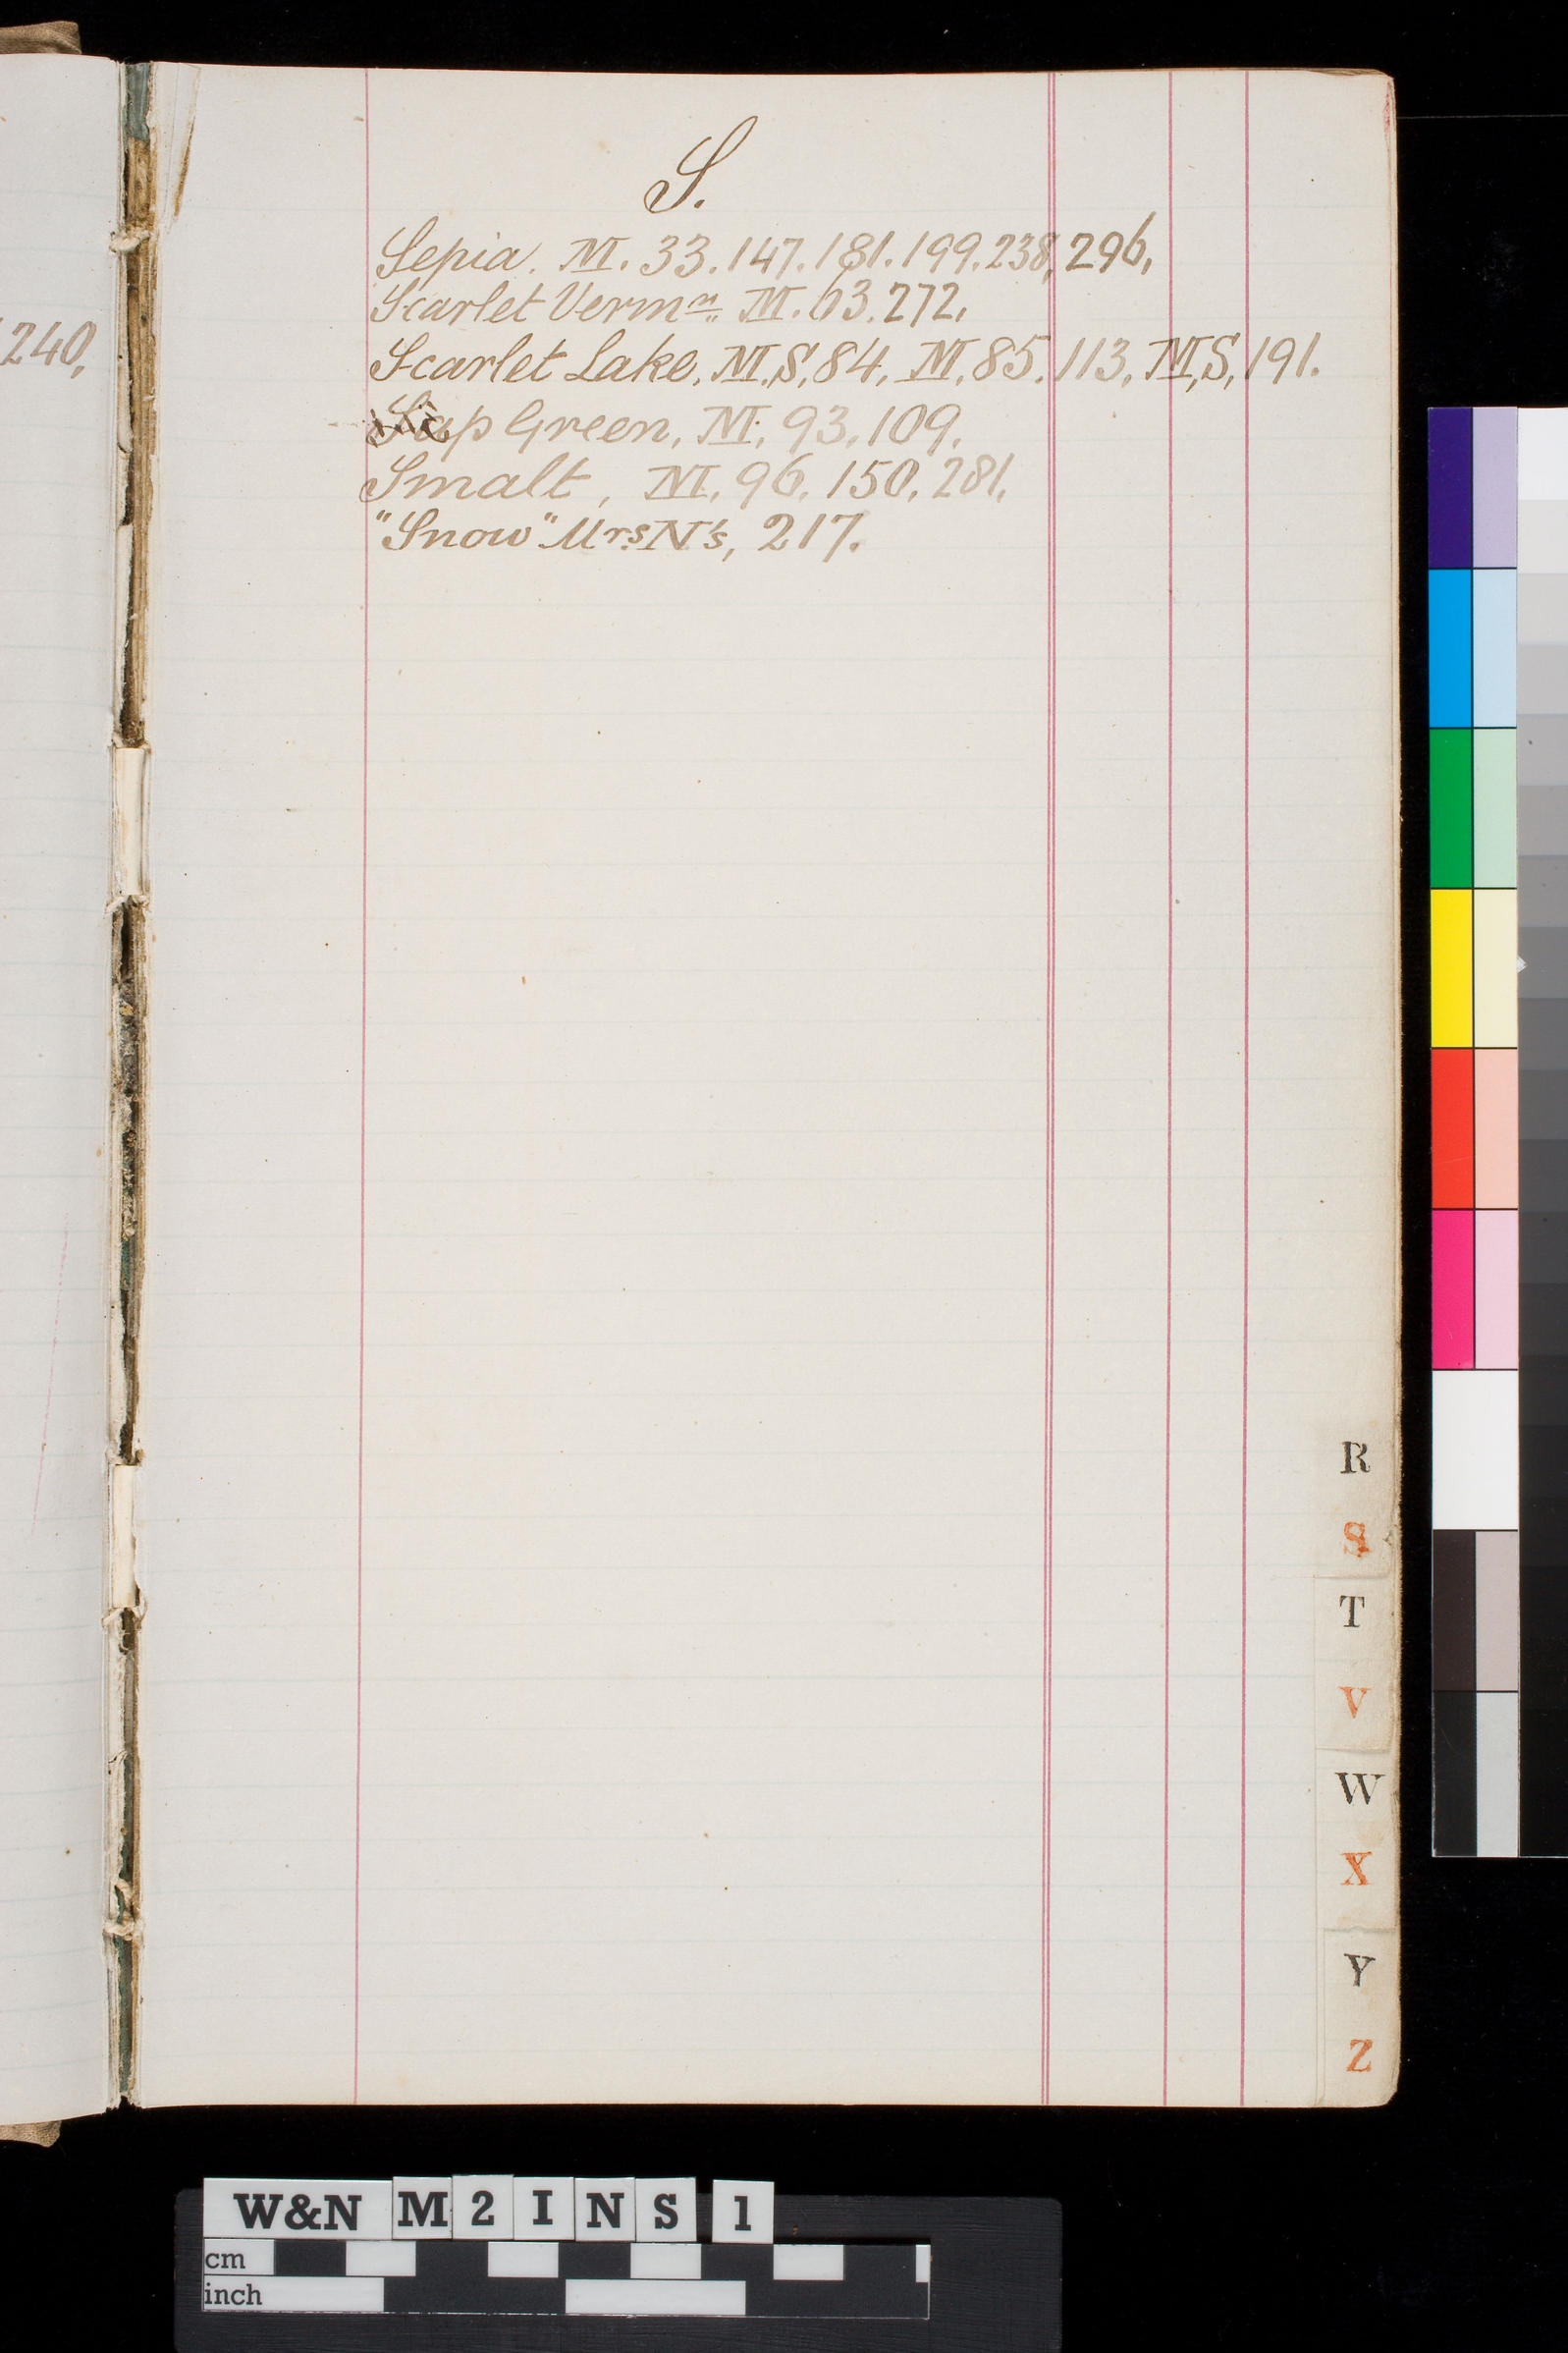 S.
Sepia. M. 33. 147. 181. 199. 238, 296,
240,
Scarlet Vermn. M. 63. 272.
Scarlet Lake, M.S, 84, M, 85, 113, M,S, 191.
Sap Green, M. 93, 109.
Smalt, M. 96, 150, 281,
"Snow" Mrs. N's, 217.
R
S
T
V
W
X
Y
Z
W&N M 2 I N S 1
cm
inch